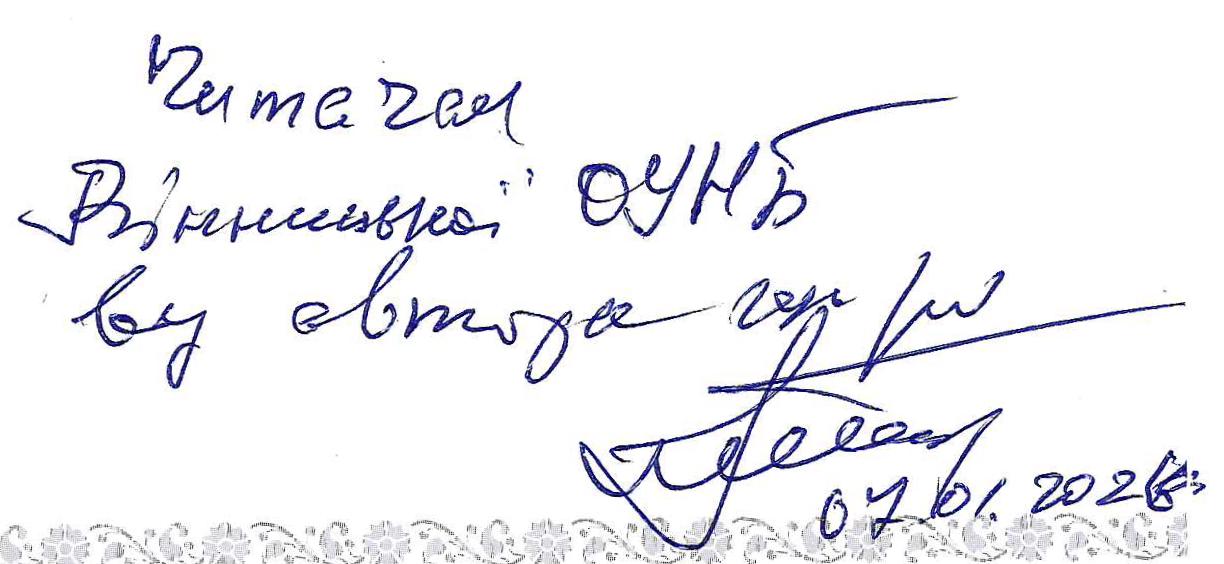 Читачам
Вінницької ОУНБ
від автора
07.01.202